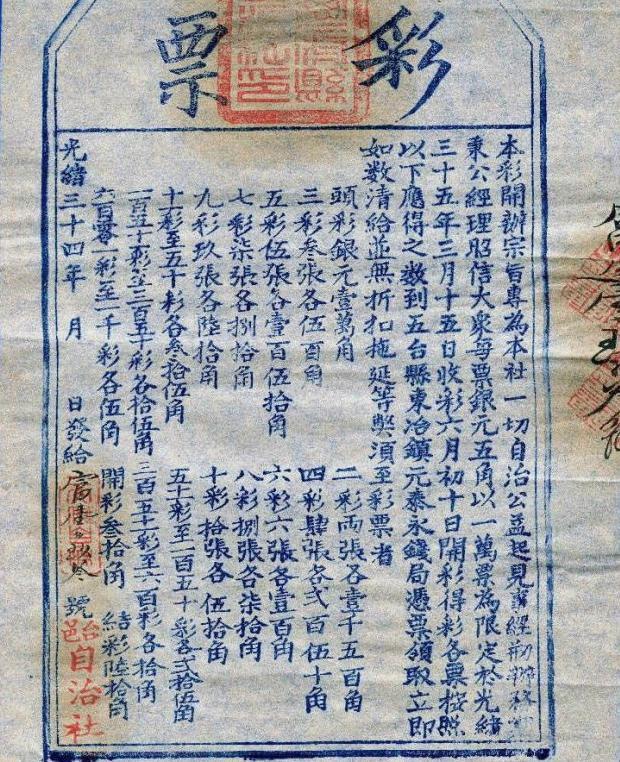 彩票
本彩開辦宗旨專為本社一切自治公益起見事經初辦務
秉公經理昭信大衆每票銀元五角以一萬票為限定於光緒
三十五年三月十五日收彩六月初十日開彩得彩各票按照
以下應得之数到五台縣東冶鎮元泰永錢局憑票領取立即
如数清給並無折扣拖延等獘須至彩票者
頭彩銀元壹萬角 二彩兩張各壹千五百角
三彩叁張各伍百角 四彩肆張各弍百伍十角
五彩伍張各壹百伍拾角 六彩六張各壹百角
七彩柒張各捌拾角 八彩捌張各柒拾角
九彩玖張各陸拾角 十彩拾張各伍拾角
十一彩至五十彩各叁拾伍角 五十一彩至一百五十彩各弍拾伍角
一百五十一彩至三百五十彩各拾伍角 三百五十一彩至六百彩各拾角
六百零一彩至一千彩各伍角 開彩叁拾角 結彩陸拾角
光緒三十四年 月 日發給 號 台邑自治社